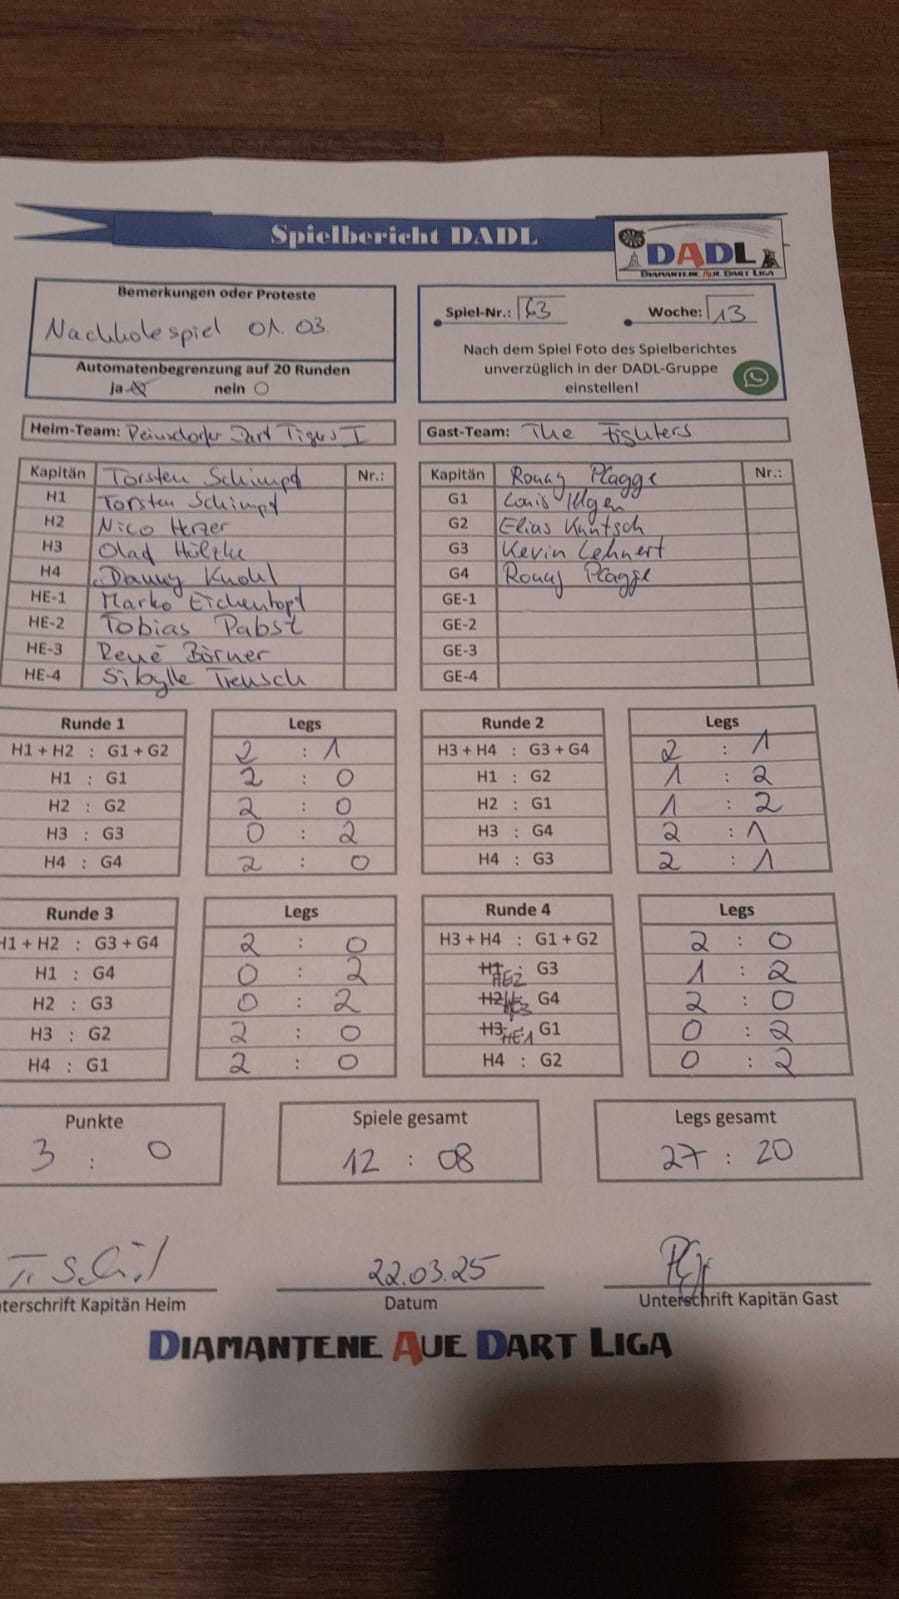 Spielbericht DADL
DADL
DIAMANTENE AUE DART LIGA
Bemerkungen oder Proteste
Nachholespiel 01.03.
Automatenbegrenzung auf 20 Runden
ja nein
Spiel-Nr.: 63 Woche: 13
Nach dem Spiel Foto des Spielberichtes
unverzüglich in der DADL-Gruppe
einstellen!
Heim-Team: Reinsdorfer Dart Tigers I
Gast-Team: The Fighters
Kapitän Torsten Schimpf Nr.:
H1 Torsten Schimpf
H2 Nico Herzer
H3 Olaf Höltke
H4 Danny Knohl
HE-1 Marko Eichentopf
HE-2 Tobias Pabst
HE-3 René Börner
HE-4 Sibylle Trensch
Kapitän Ronny Plagge Nr.:
G1 Louis Illgen
G2 Elias Kuntsch
G3 Kevin Lehnert
G4 Ronny Plagge
GE-1
GE-2
GE-3
GE-4
Runde 1 Legs
H1 + H2 : G1 + G2 2 : 1
H1 : G1 2 : 0
H2 : G2 2 : 0
H3 : G3 0 : 2
H4 : G4 2 : 0
Runde 2 Legs
H3 + H4 : G3 + G4 2 : 1
H1 : G2 1 : 2
H2 : G1 1 : 2
H3 : G4 2 : 1
H4 : G3 2 : 1
Runde 3 Legs
H1 + H2 : G3 + G4 2 : 0
H1 : G4 0 : 2
H2 : G3 0 : 2
H3 : G2 2 : 0
H4 : G1 2 : 0
Runde 4 Legs
H3 + H4 : G1 + G2 2 : 0
H1 HE2 : G3 1 : 2
H2 : G4 2 : 0
H3 HE1 : G1 0 : 2
H4 : G2 0 : 2
Punkte
3 : 0
Spiele gesamt
12 : 08
Legs gesamt
27 : 20
22.03.25
terschrift Kapitän Heim
Datum
Unterschrift Kapitän Gast
DIAMANTENE AUE DART LIGA